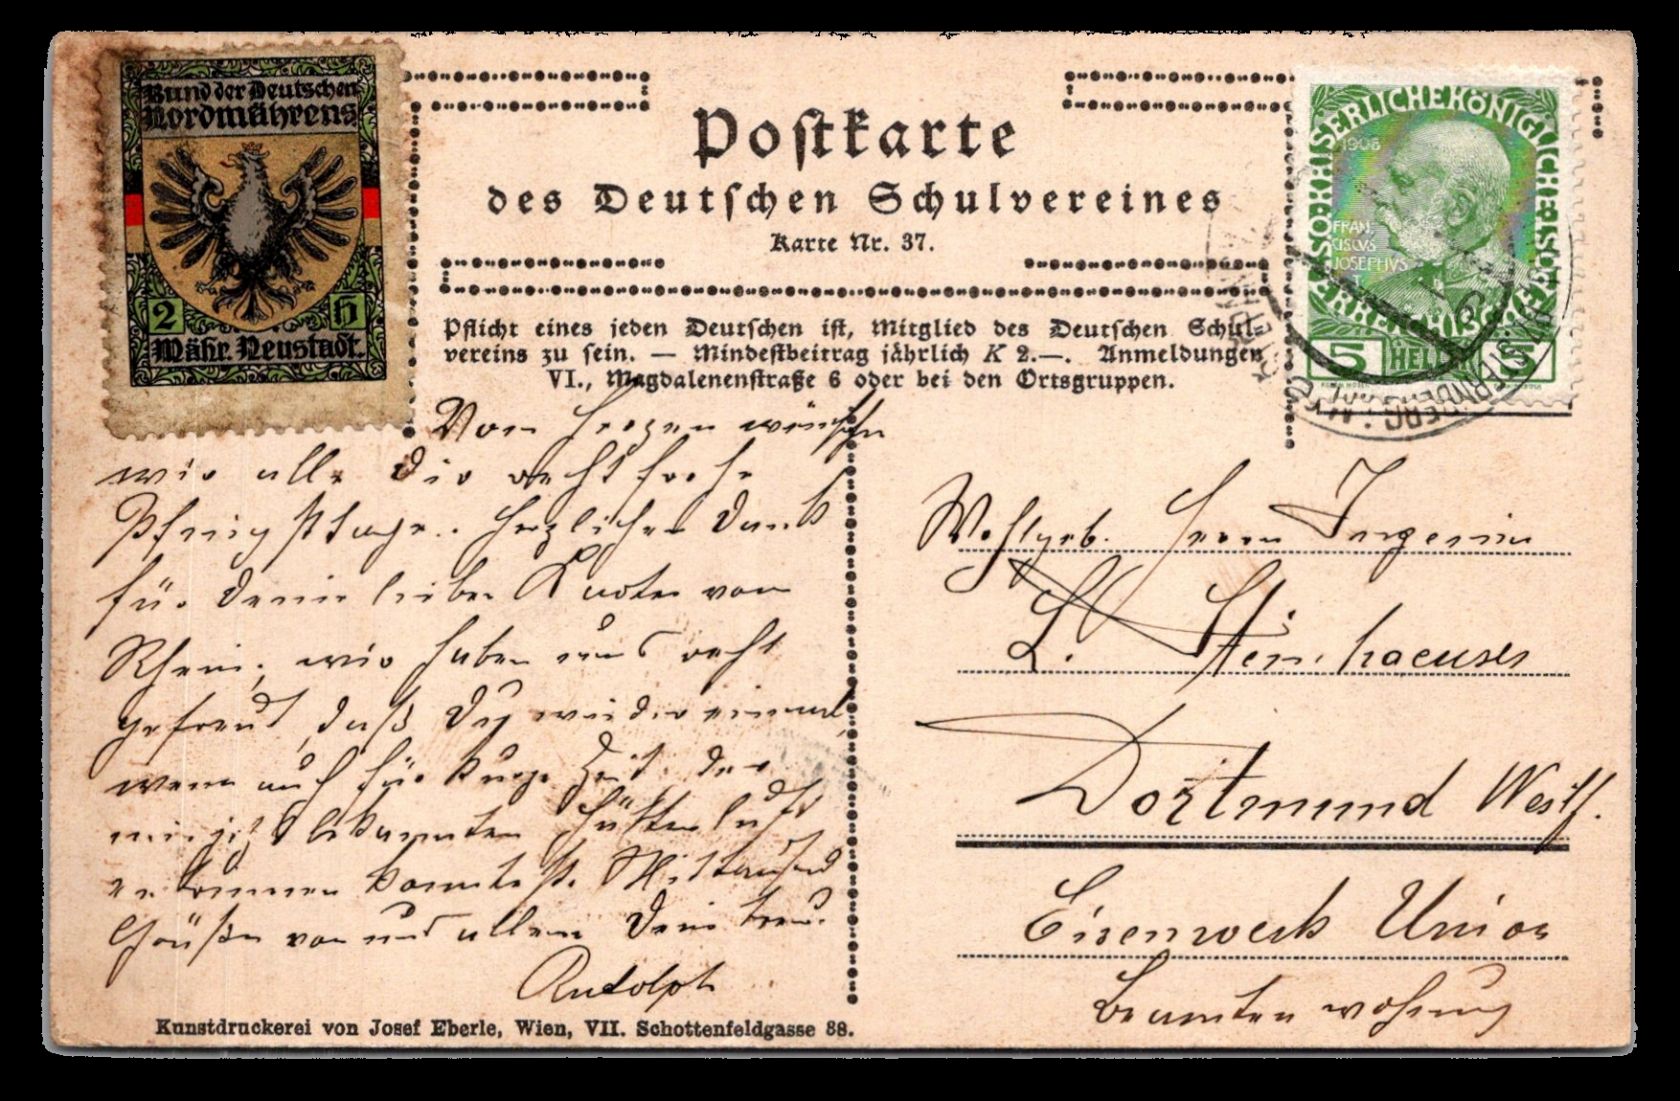 Bund der Deutschen
Nordmährens
2 H
Mähr. Neustadt.
Postkarte
des Deutschen Schulvereines
Karte Nr. 37.
KAISERLICHE KÖNIGLICHE ÖSTERREICHISCHE
1908
FRAN
CISCVS
JOSEPHVS
5 HELLER 5
Pflicht eines jeden Deutschen ist, Mitglied des Deutschen Schul-
vereins zu sein. — Mindestbeitrag jährlich K 2.—. Anmeldungen
VI., Magdalenenstraße 6 oder bei den Ortsgruppen.
Von Herzen wünschen
wir alle Dir recht frohe
Pfingsttage. Herzlichen Dank
für Deine lieben Karten vom
Rhein, wir haben uns recht
gefreut, daß Du wieder einmal,
wenn auch für kurze Zeit, der
bekannten Hüttenluft
entrinnen konntest. Mit tausend
Grüßen von uns allen Dein treuer
Rudolph
Wohlgeb. Herrn Ingenieur
L. Steinhaeuser
Dortmund Westf.
Eisenwerk Union
Beamtenwohnung
Kunstdruckerei von Josef Eberle, Wien, VII. Schottenfeldgasse 38.